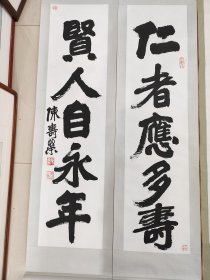 仁者應多壽
賢人自永年
陳壽榮